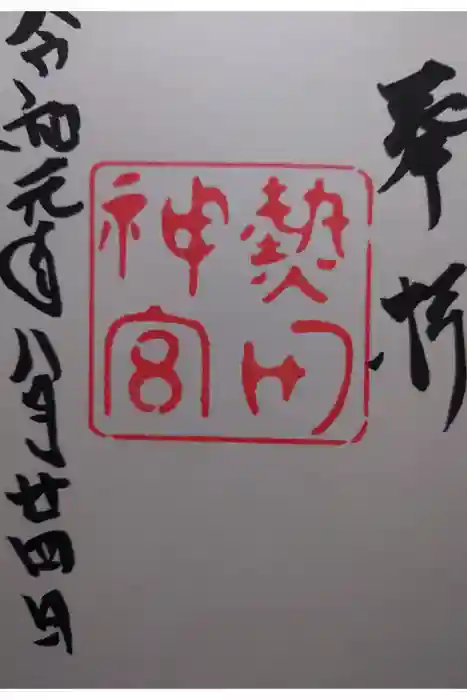 奉拝
熱田
神宮
令和元年八月廿四日